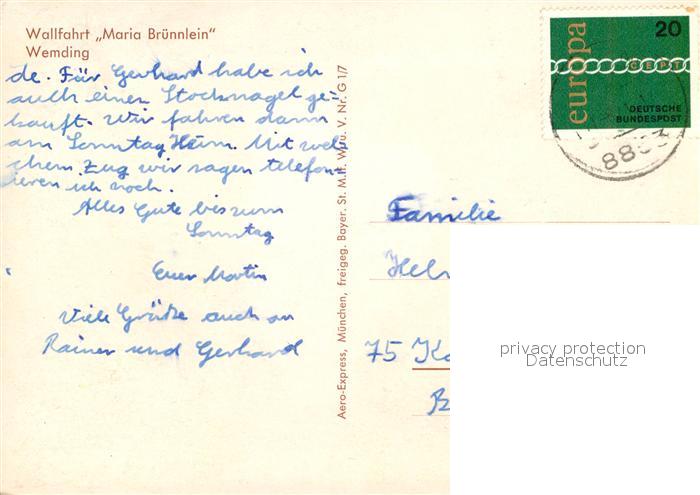 Wallfahrt „Maria Brünnlein"
Wemding
de. Für Gerhard habe ich
auch einen Stocknagel ge-
kauft. Wir fahren dann
am Sonntag Heim. Mit wel-
chem Zug wir sagen telefon-
ieren ich noch.
Alles Gute bis zum
Sonntag
Euer Martin
Viele Grüße auch an
Rainer und Gerhard
Aero-Express, München, freigeg. Bayer. St. M. f. W. u. V. Nr. G 1/7
europa
20
CEPT
DEUTSCHE
BUNDESPOST
Familie
75 Ka
privacy protection
Datenschutz